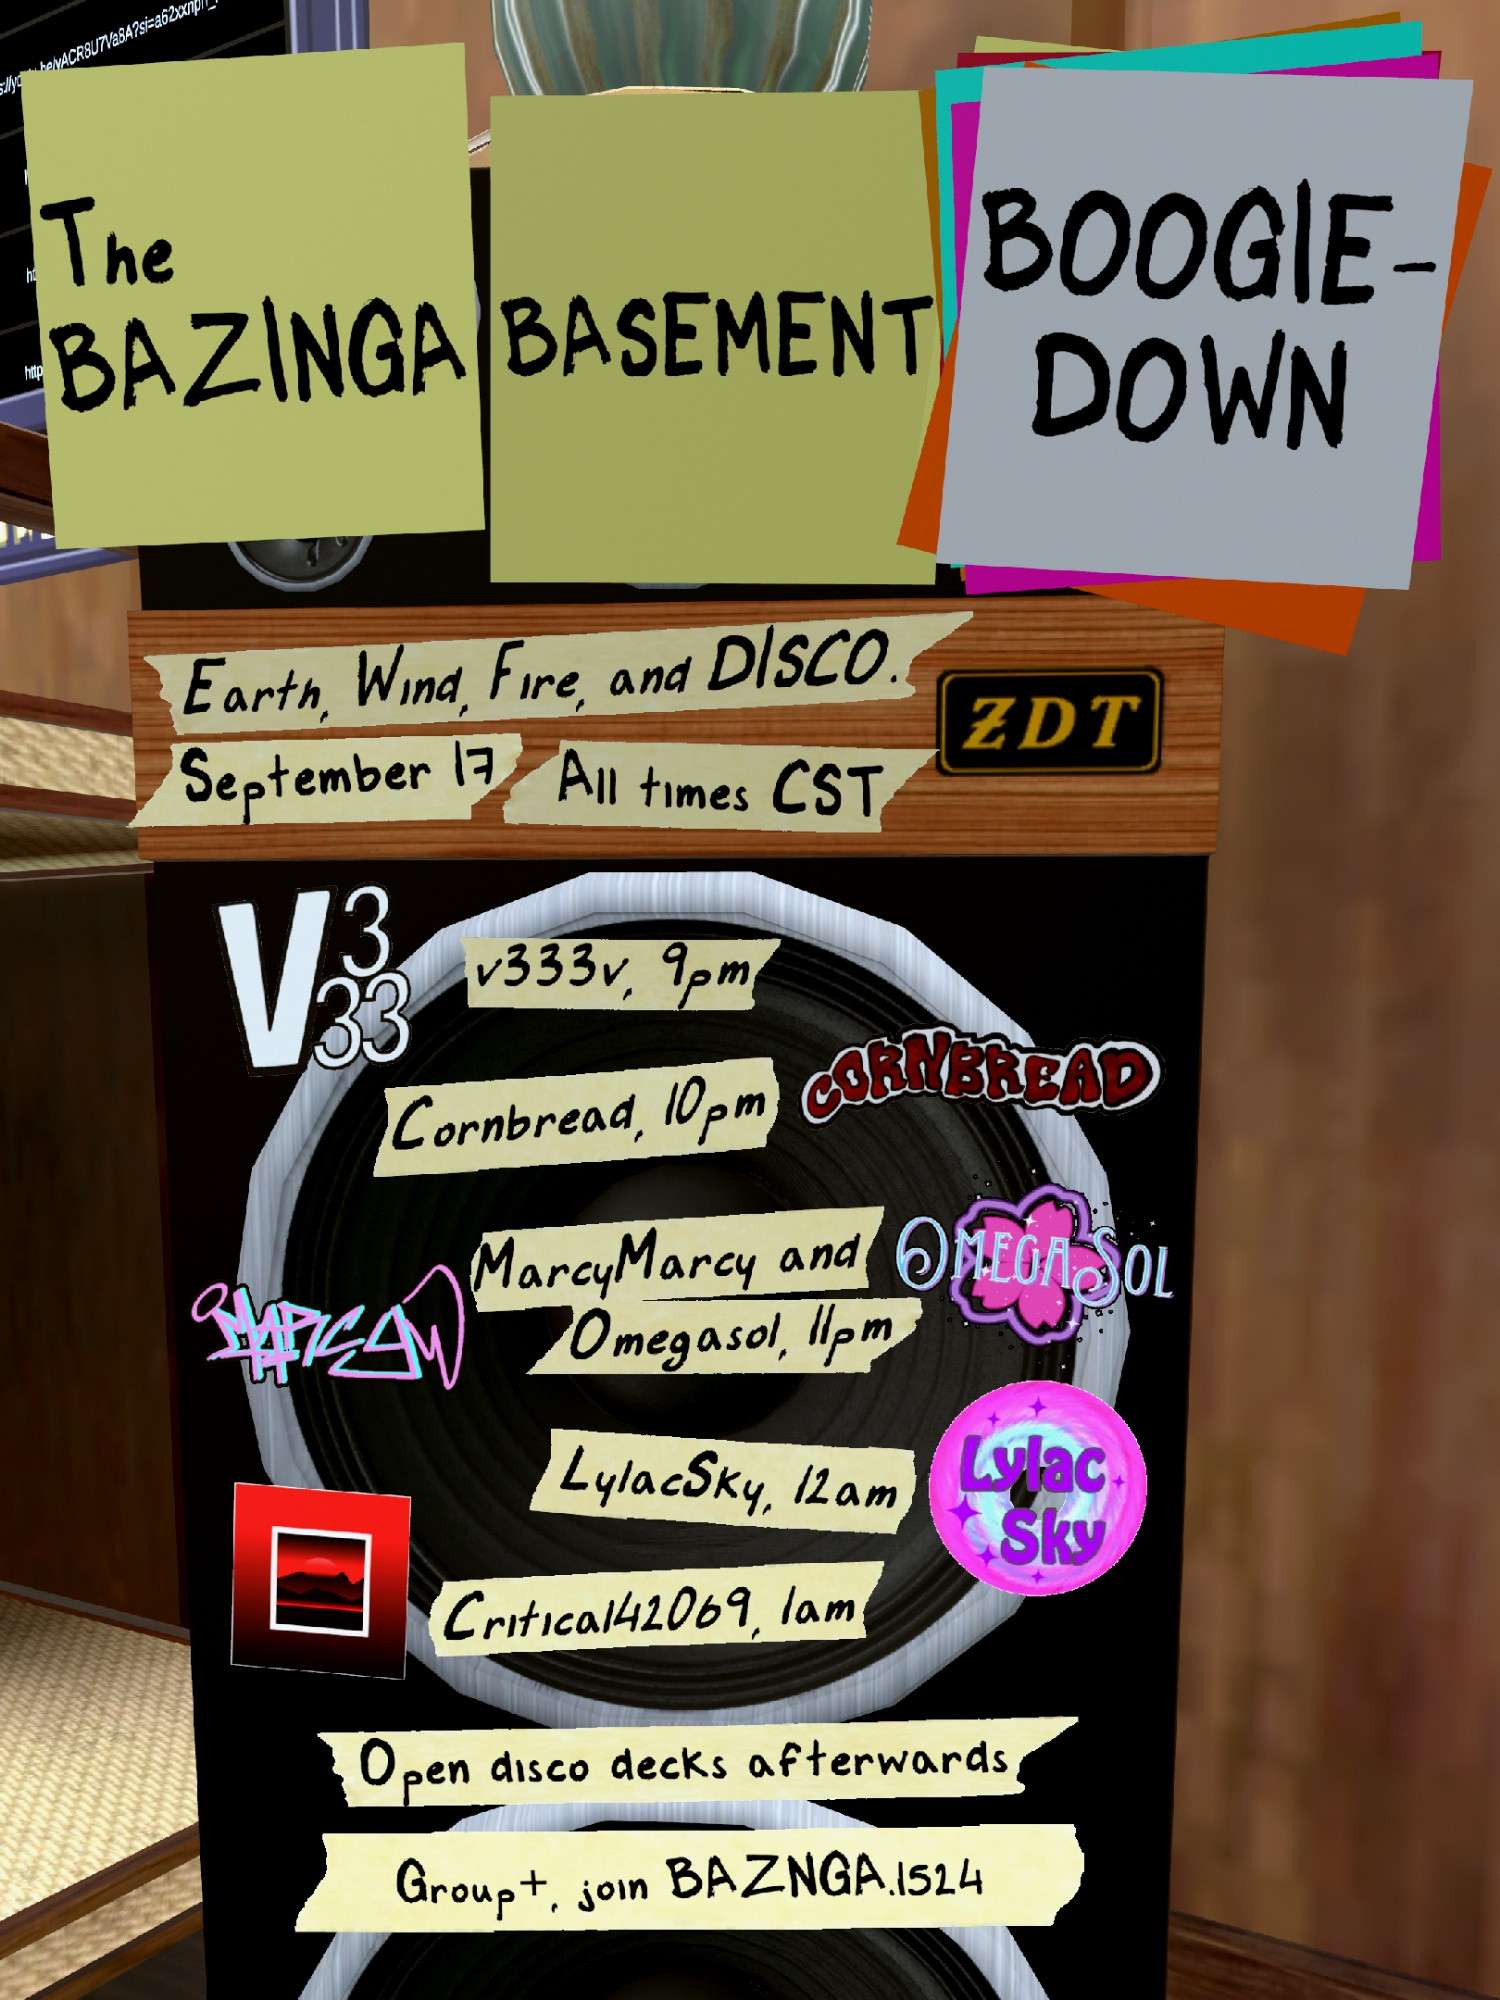 The
BAZINGA
BASEMENT
BOOGIE-
DOWN
Earth, Wind, Fire, and DISCO.
ZDT
September 17
All times CST
V333
v333v, 9pm
Cornbread, 10pm
CORNBREAD
MarcyMarcy and
Omegasol, 11pm
OMEGASOL
MARCY
LylacSky, 12am
Lylac
Sky
Critical42069, 1am
Open disco decks afterwards
Group+, join BAZNGA.1524